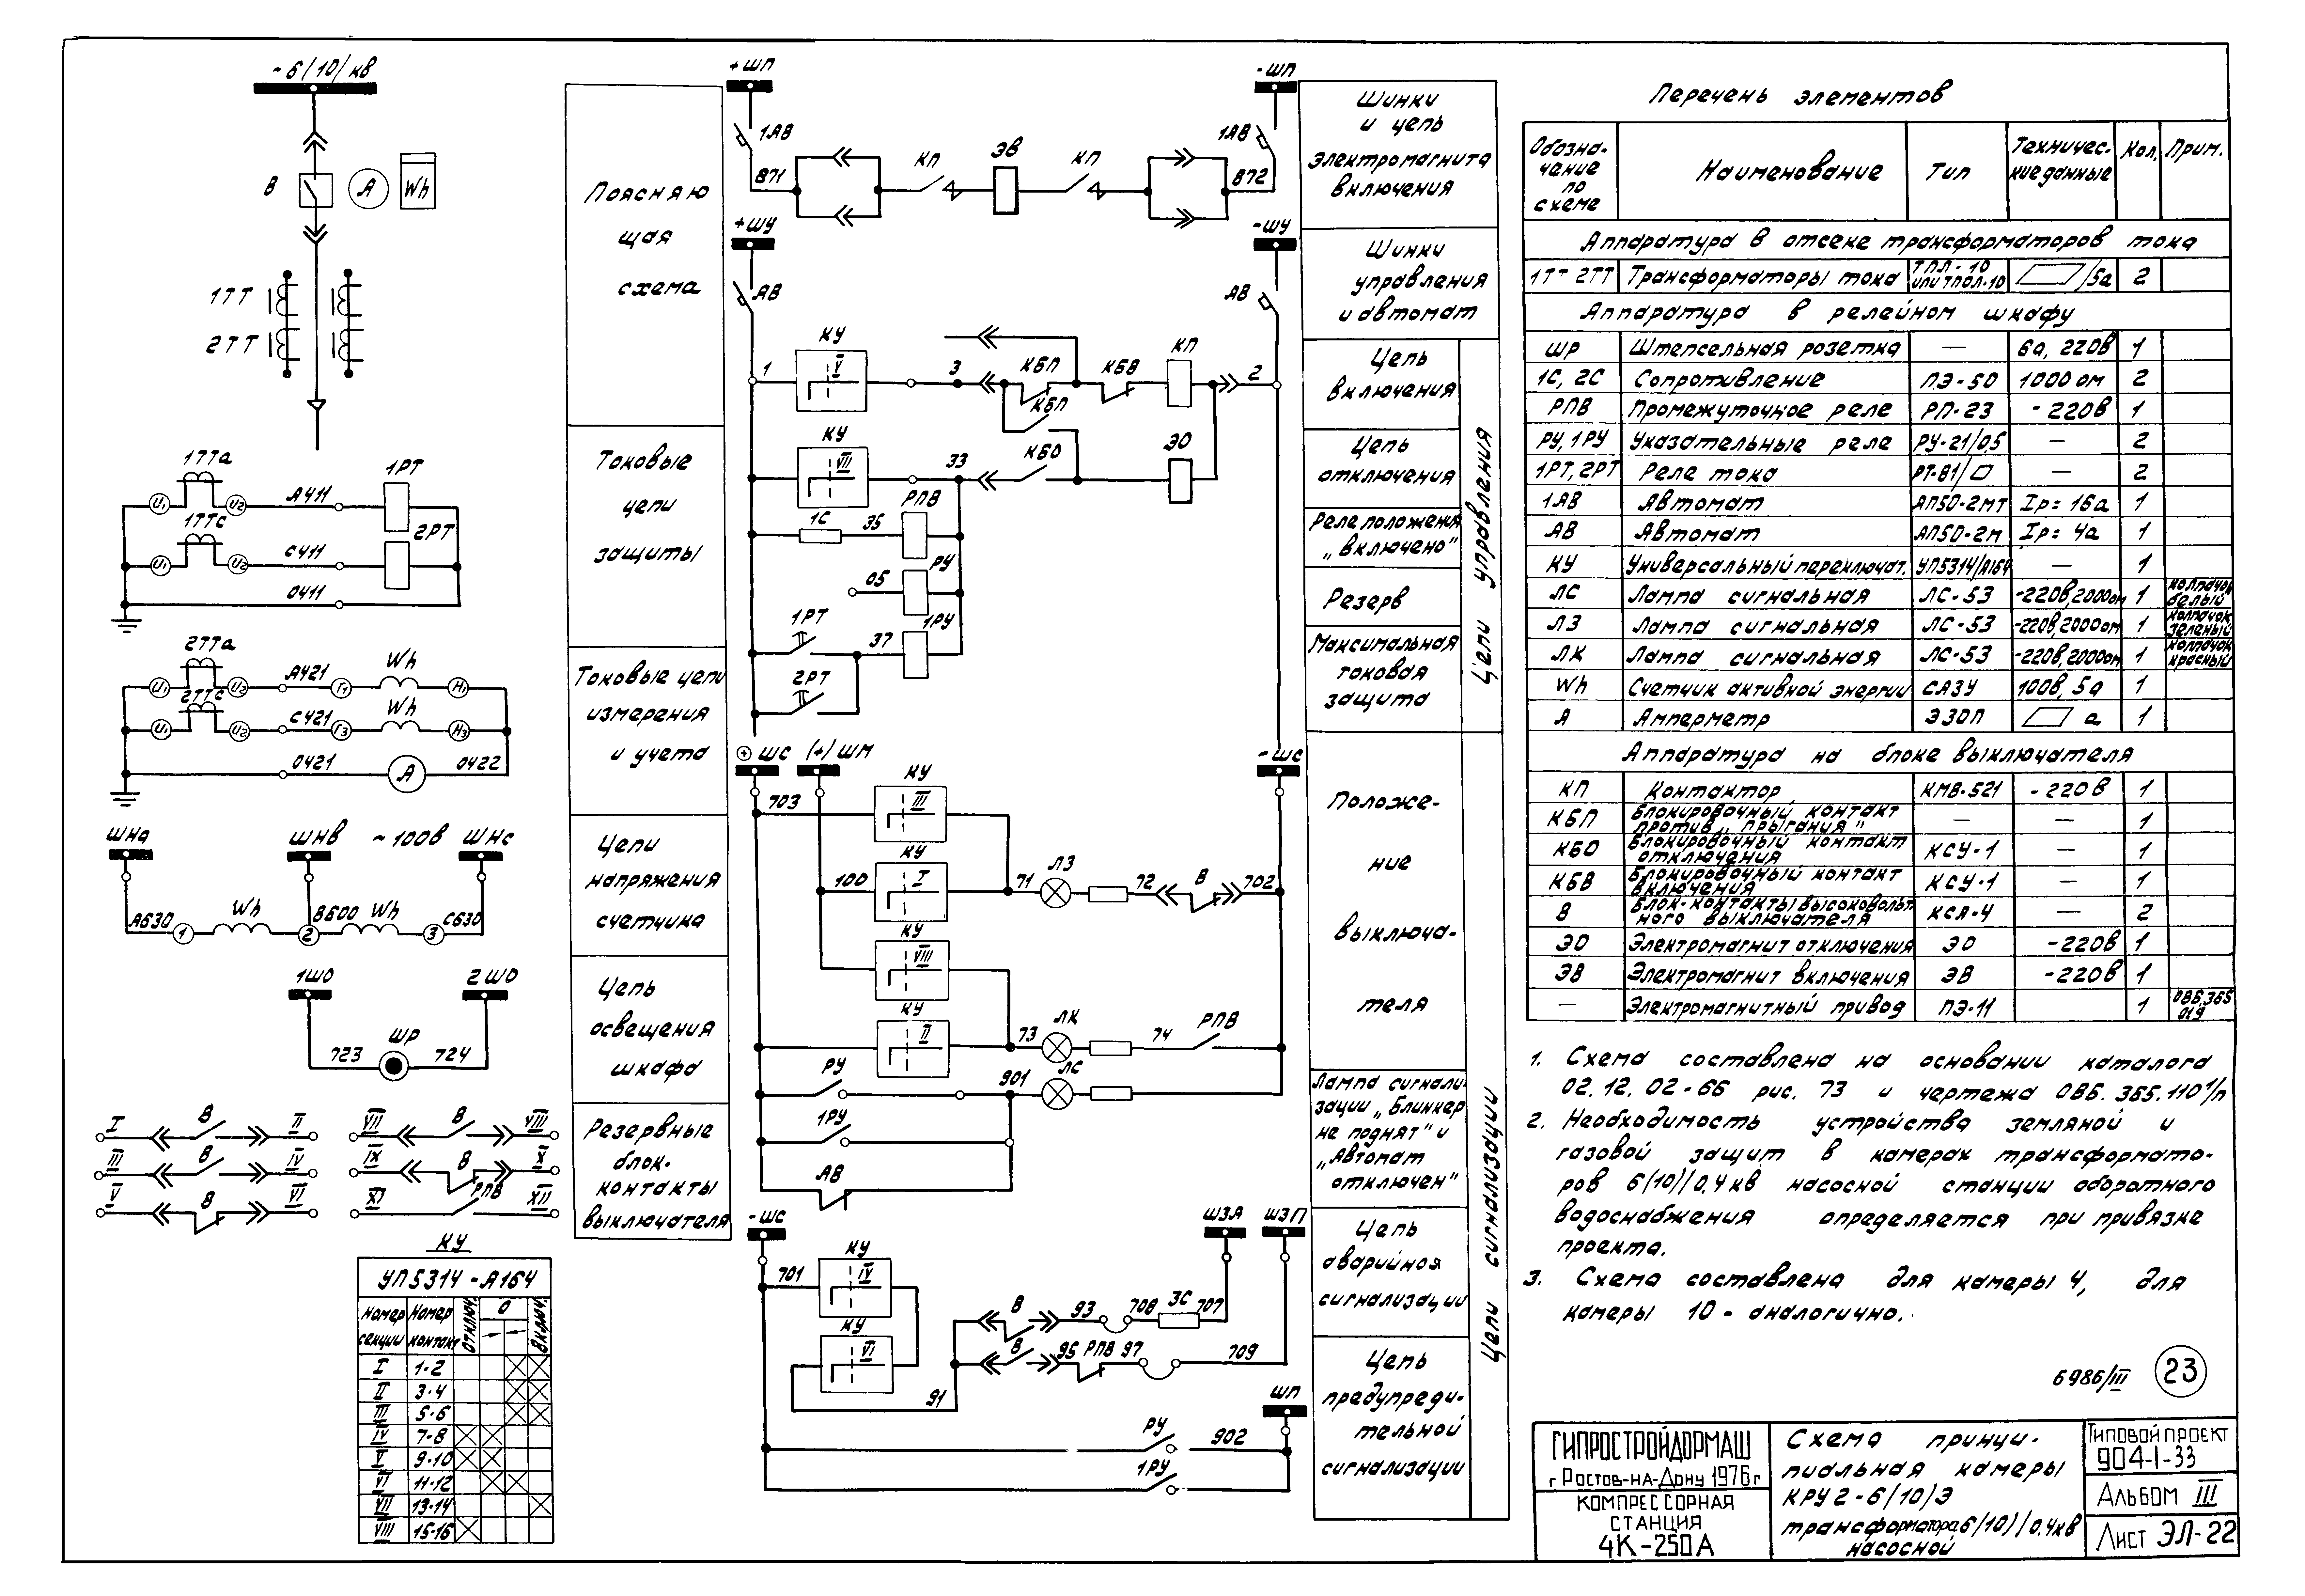 ~6/10/кв
В
А
Wh
1ТТ
2ТТ
1ТТа
И₁
И₂
А411
1РТ
1ТТс
И₁
И₂
С411
2РТ
0411
2ТТа
И₁
И₂
А421
Г₁
Wh
Н₁
2ТТс
И₁
И₂
С421
Г₃
Wh
Н₃
0421
А
0422
ШНа
ШНв
~100в
ШНс
А630
1
Wh
В600
2
Wh
3
С630
1ШО
2ШО
723
ШР
724
I В II
VII В VIII
III В IV
IX В X
V В VI
XI РПВ XII
КУ
УП5314-А164
Номер секции
Номер контакт
Отключ.
0
Включ.
I 1-2
II 3-4
III 5-6
IV 7-8
V 9-10
VI 11-12
VII 13-14
VIII 15-16
Поясняю
щая
схема
Токовые
цепи
защиты
Токовые цепи
измерения
и учета
Цепи
напряжения
счетчика
Цепь
освещения
шкафа
Резервные
блок-
контакты
выключателя
+ШП
-ШП
1АВ
1АВ
871
КП
ЭВ
КП
872
+ШУ
-ШУ
АВ
АВ
1
КУ
V
3
КБП
КБВ
КП
2
КБП
КУ
VII
33
КБО
ЭО
1С
35
РПВ
05
РУ
1РТ
37
1РУ
2РТ
+ ШС
(+) ШМ
-ШС
703
КУ
III
100
КУ
I
71
ЛЗ
72
В
702
КУ
VIII
КУ
II
73
ЛК
74
РПВ
РУ
901
ЛС
1РУ
АВ
-ШС
ШЗА
ШЗП
701
КУ
IV
КУ
VI
91
В
93
708
ЗС
707
В
95
РПВ
97
709
ШП
РУ
902
1РУ
Шинки
и цепь
электромагнита
включения
Шинки
управления
и автомат
Цепь
включения
Цепь
отключения
Реле положения
„включено"
Резерв
Максимальная
токовая
защита
Цепи управления
Положе-
ние
выключа-
теля
Лампа сигнали-
зации „Блинкер
не поднят" и
„Автомат
отключен"
Цепь
аварийной
сигнализации
Цепь
предупреди-
тельной
сигнализации
Цепи сигнализации
Перечень элементов
Обозна-
чение
по
схеме
Наименование
Тип
Техничес-
кие данные
Кол.
Прим.
Аппаратура в отсеке трансформаторов тока
1ТТ 2ТТ Трансформаторы тока ТПЛ-10 или ТПОЛ-10 /5а 2
Аппаратура в релейном шкафу
ШР Штепсельная розетка — 6а, 220в 1
1С, 2С Сопротивление ПЭ-50 1000 ом 2
РПВ Промежуточное реле РП-23 -220в 1
РУ, 1РУ Указательные реле РУ-21/0,5 — 2
1РТ, 2РТ Реле тока РТ-81/ — 2
1АВ Автомат АП50-2МТ Iр= 16а 1
АВ Автомат АП50-2М Iр= 4а 1
КУ Универсальный переключат. УП5314/А164 — 1
ЛС Лампа сигнальная ЛС-53 -220в, 2000ом 1 колпачок белый
ЛЗ Лампа сигнальная ЛС-53 -220в, 2000ом 1 колпачок зеленый
ЛК Лампа сигнальная ЛС-53 -220в, 2000ом 1 колпачок красный
Wh Счетчик активной энергии САЗУ 100в, 5а 1
А Амперметр Э30П а 1
Аппаратура на блоке выключателя
КП Контактор КМВ-521 -220в 1
КБП Блокировочный контакт против „прыгания" — — 1
КБО Блокировочный контакт отключения КСУ-1 — 1
КБВ Блокировочный контакт включения КСУ-1 — 1
В Блок-контакты высоковольт-ного выключателя КСА-4 — 2
ЭО Электромагнит отключения ЭО -220в 1
ЭВ Электромагнит включения ЭВ -220в 1
— Электромагнитный привод ПЭ-11 1 0ВБ.365 019
1. Схема составлена на основании каталога
02.12.02-66 рис. 73 и чертежа 0ВБ.365.110 л/п
2. Необходимость устройства земляной и
газовой защит в камерах трансформато-
ров 6/10//0,4кв насосной станции оборотного
водоснабжения определяется при привязке
проекта.
3. Схема составлена для камеры 4, для
камеры 10 - аналогично.
6986/III
23
ГИПРОСТРОЙДОРМАШ
г Ростов-на-Дону 1976г
КОМПРЕССОРНАЯ
СТАНЦИЯ
4К-250А
Схема принци-
пиальная камеры
КРУ2-6/10/Э
трансформатора 6/10//0,4кв
насосной
Типовой проект
904-1-33
Альбом III
Лист ЭЛ-22